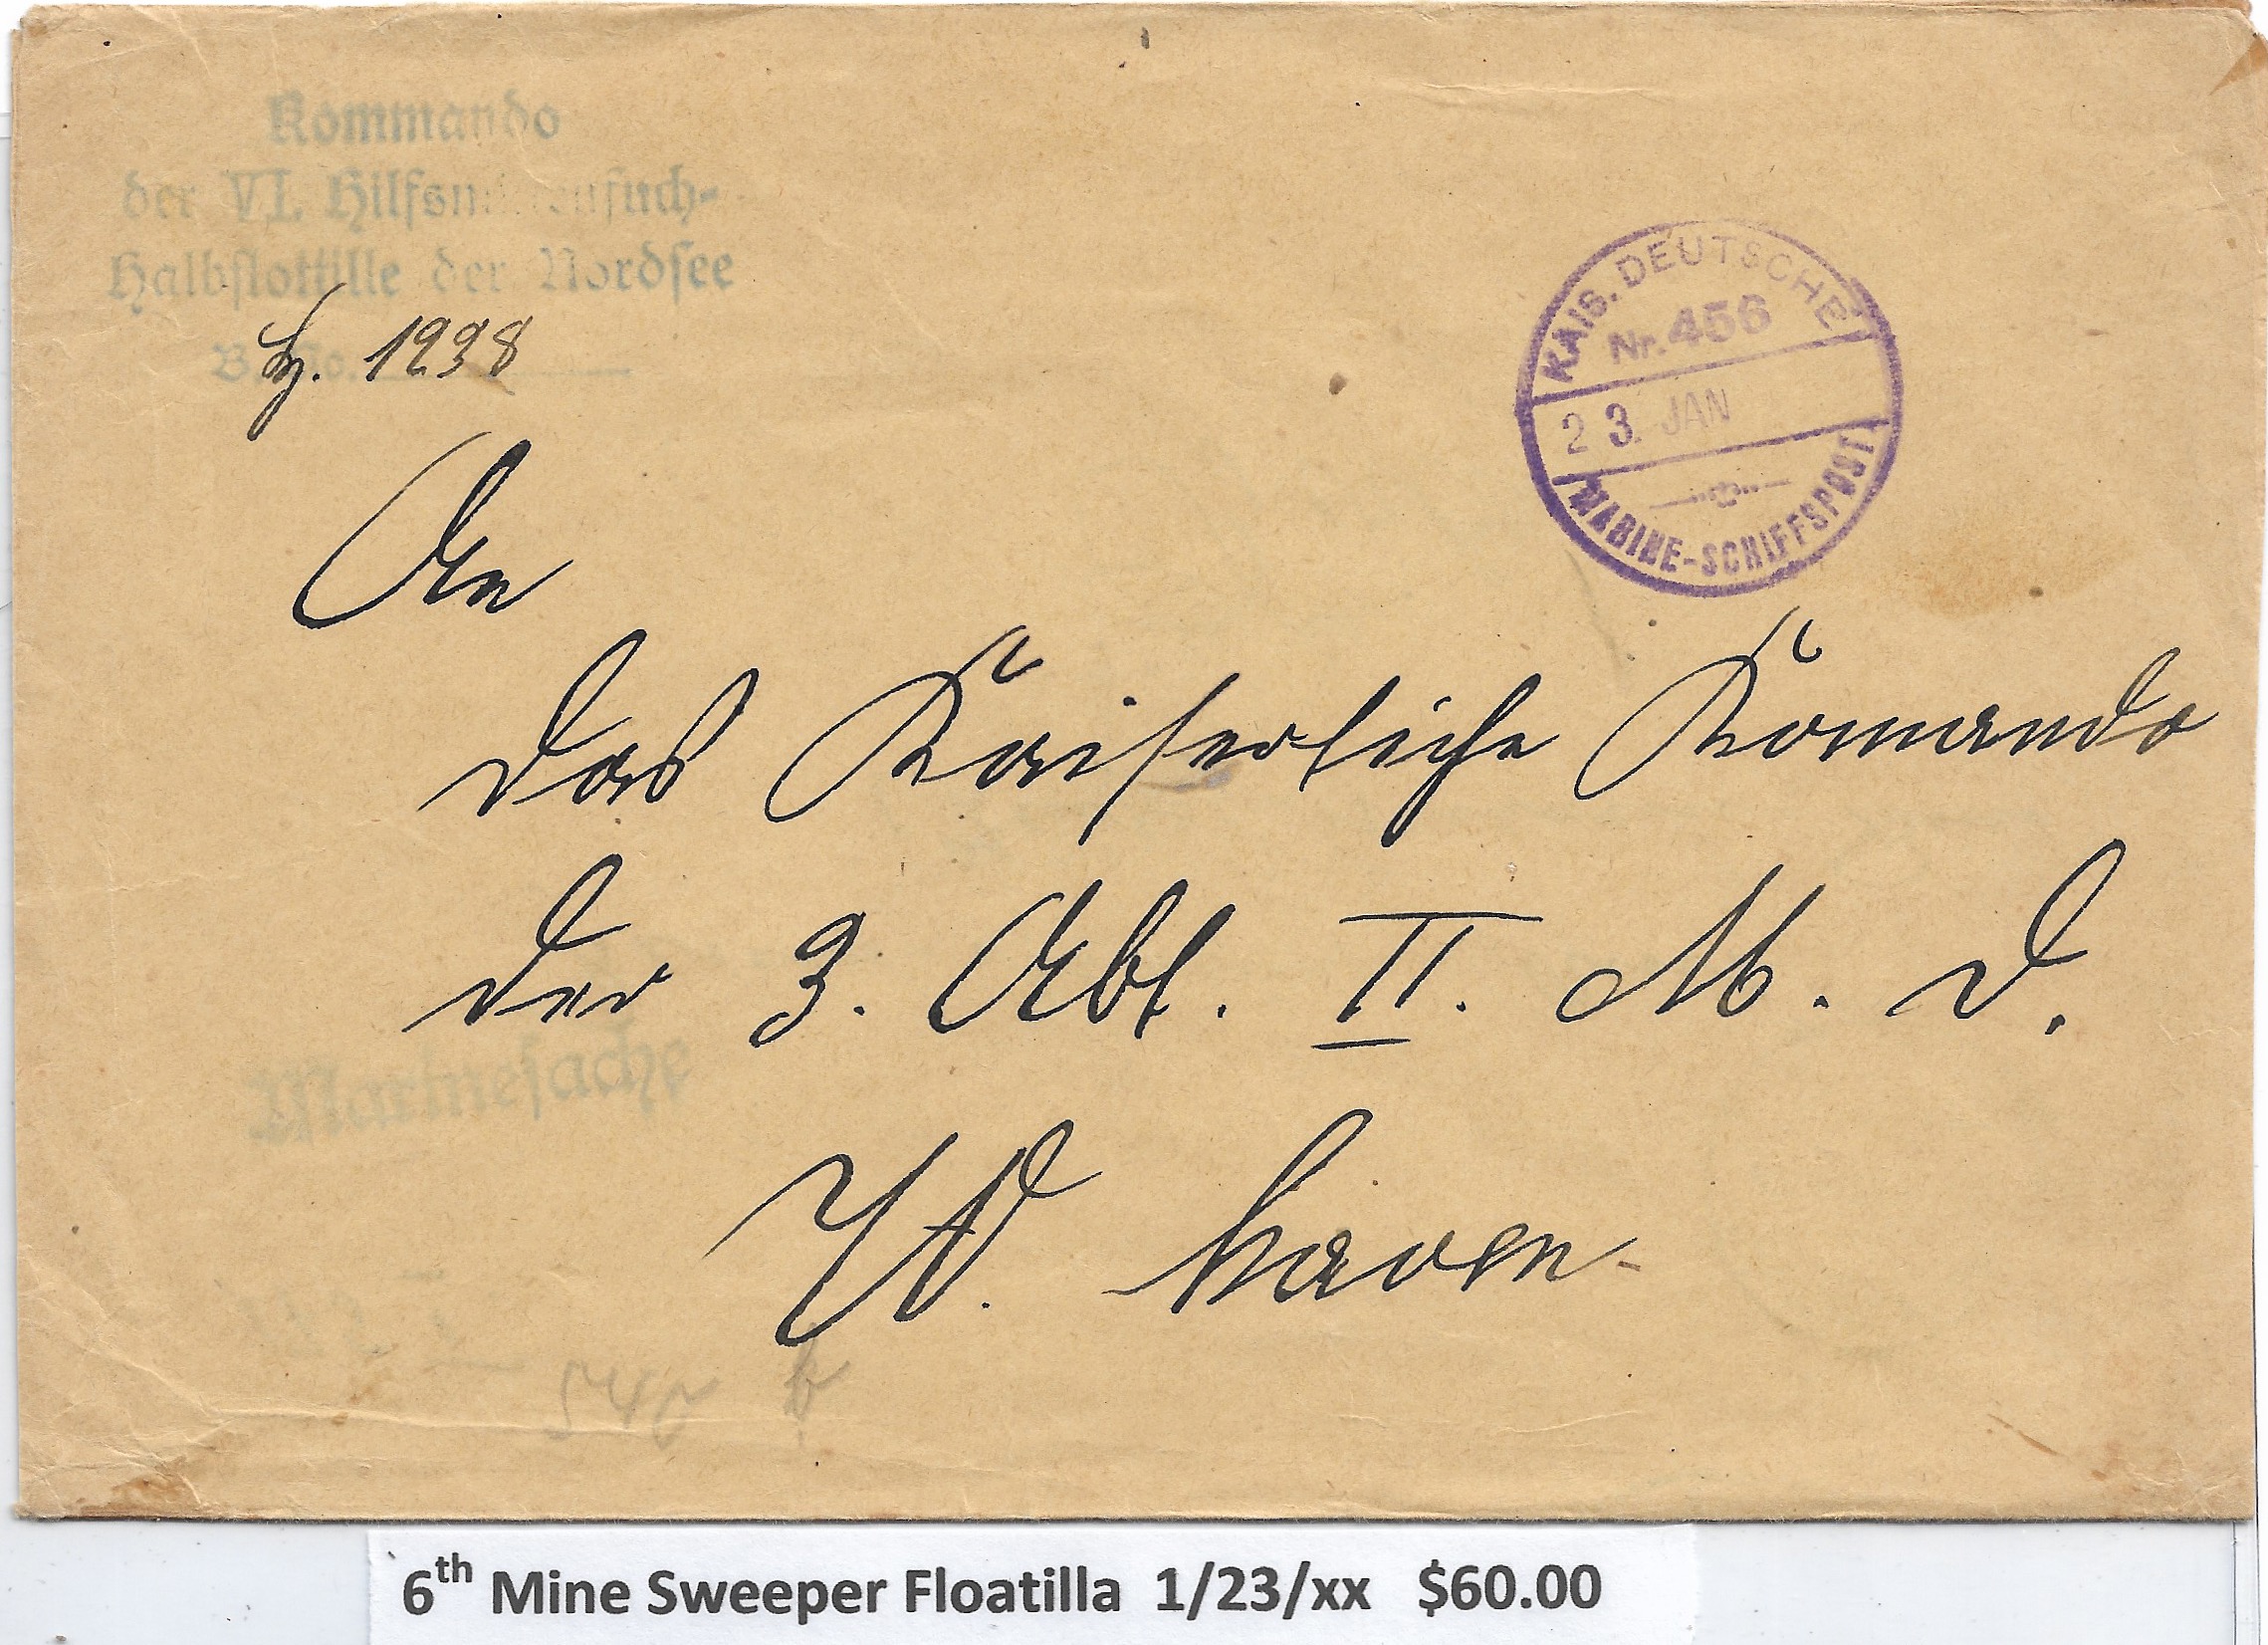 Kommando
der VI. Hilfsminensuch-
Halbflottille der Nordsee
B. No. 1298
KAIS. DEUTSCHE
Nr. 456
23. JAN
MARINE-SCHIFFSPOST
An
das Kaiserliche Komando
der 3. Abt. II. M. D.
Marinesache
W. haven.
6th Mine Sweeper Floatilla 1/23/xx $60.00